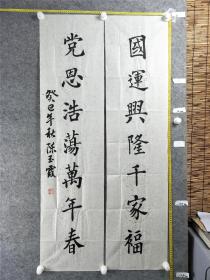 國運興隆千家福
党恩浩蕩萬年春
癸巳年秋陈玉霞